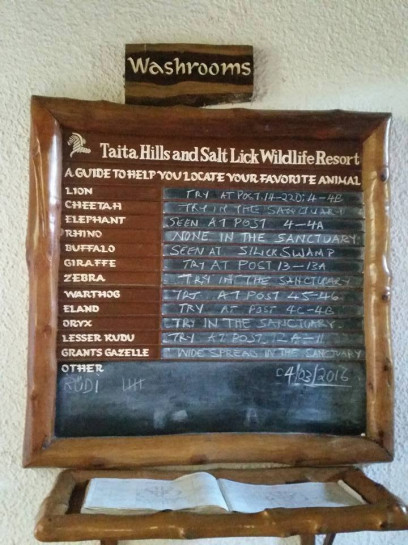 Washrooms
Taita Hills and Salt Lick Wildlife Resort
A GUIDE TO HELP YOU LOCATE YOUR FAVORITE ANIMAL
LION TRY AT POST 14-22D; 4-4B
CHEETAH TRY IN THE SANCTUARY
ELEPHANT SEEN AT POST 4-4A
RHINO NONE IN THE SANCTUARY.
BUFFALO SEEN AT SWAMP
GIRAFFE TRY AT POST 13-13A
ZEBRA TRY IN THE SANCTUARY
WARTHOG AT POST 45-46
ELAND TRY AT POST 4C-4B
ORYX TRY IN THE SANCTUARY.
LESSER KUDU TRY AT POST
GRANTS GAZELLE WIDE SPREAD IN THE SANCTUARY
OTHER
04/03/2016
RUDI